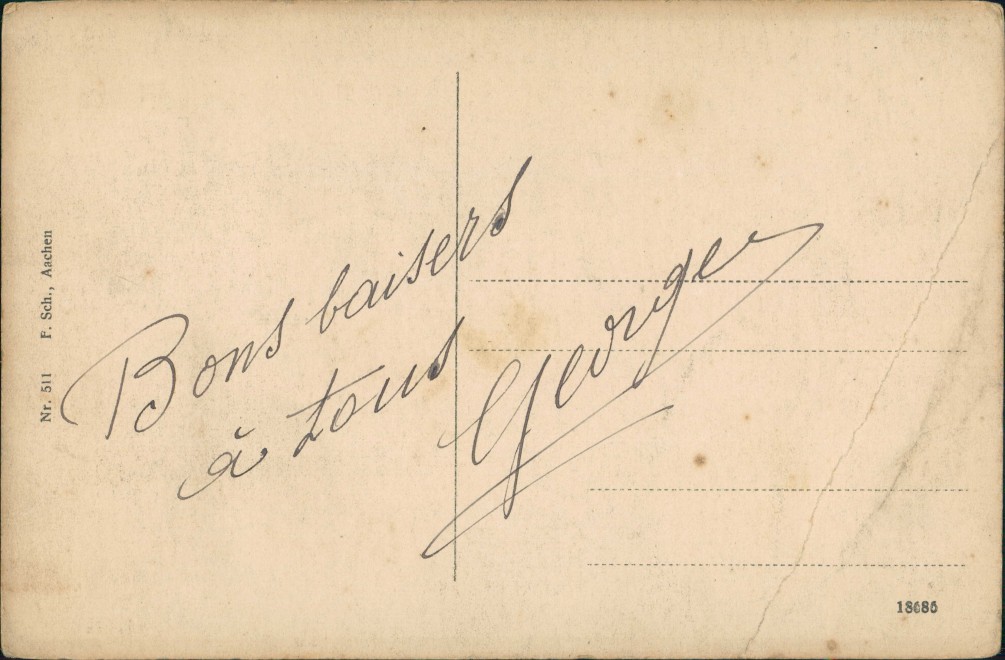 Nr. 511 F. Sch., Aachen
Bons baisers
à tous
George
18686